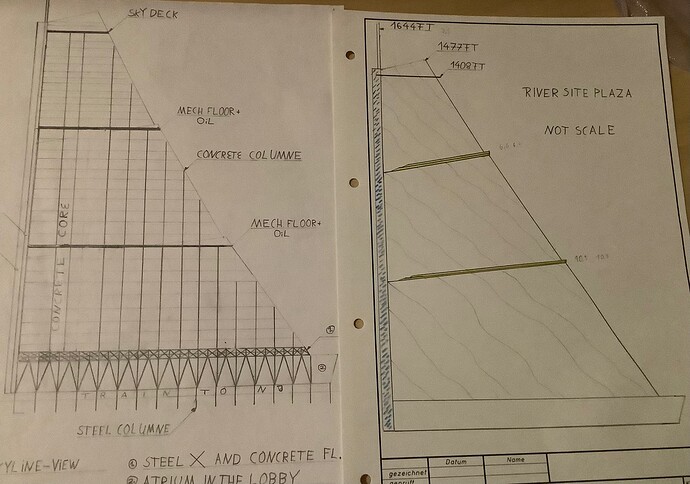 SKY DECK
MECH FLOOR+
OIL
CONCRETE COLUMNE
MECH FLOOR+
OIL
CONCRETE CORE
①
②
TRAIN TO NJ
STEEL COLUMNE
YLINE-VIEW
① STEEL X AND CONCRETE FL.
② ATRIUM IN THE LOBBY
1644FT
1477FT
1408FT
RIVER SITE PLAZA
NOT SCALE
Datum
Name
gezeichnet
geprüft